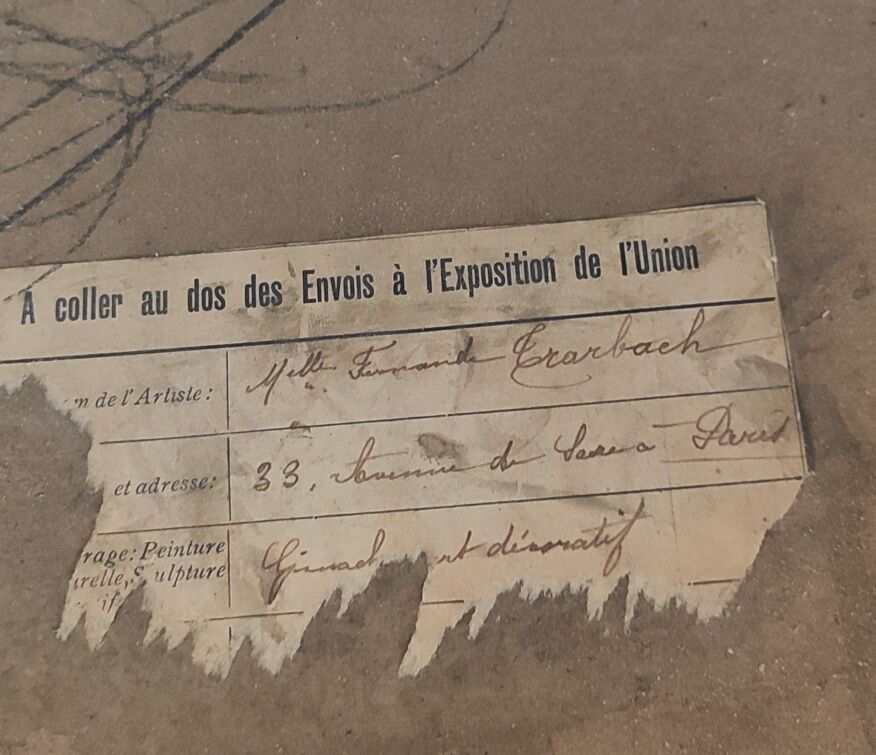 A coller au dos des Envois à l'Exposition de l'Union
m de l'Artiste: Melle Fernande Trarbach
et adresse: 33, Avenue de à Paris
rage: Peinture
relle, Sculpture
art décoratif